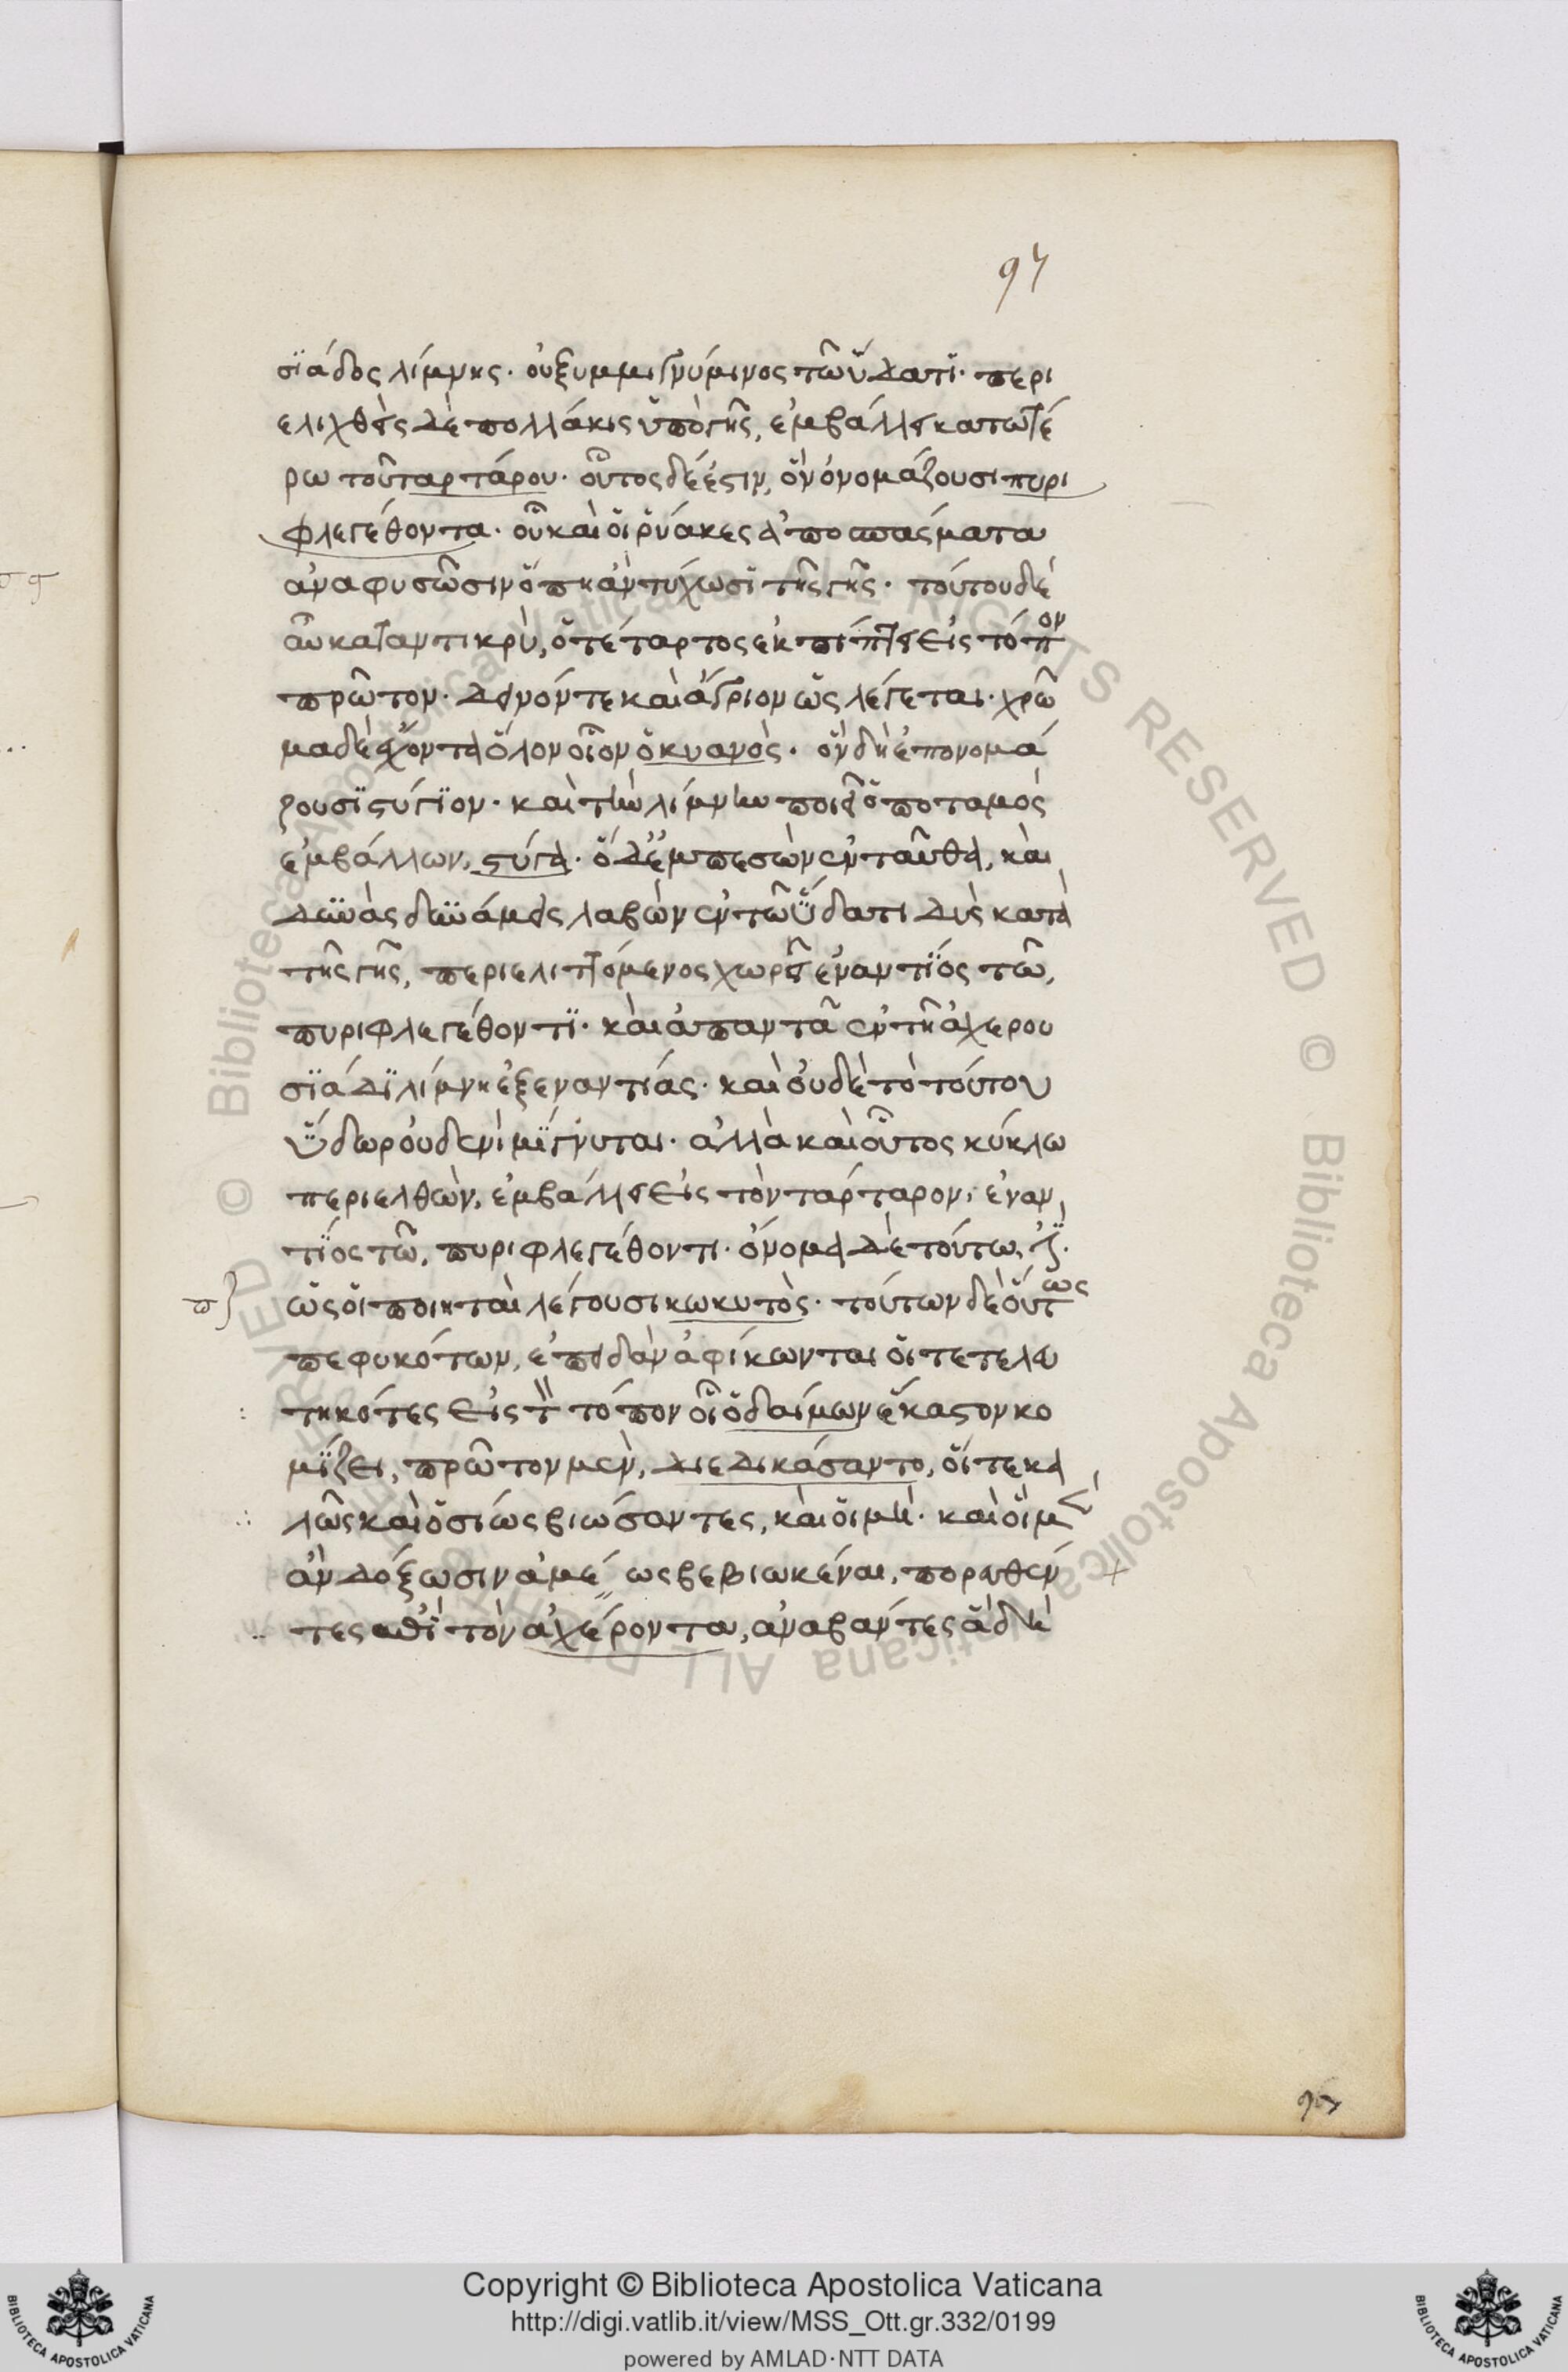 97
σϊάδος λίμνης· οὐ ξυμμιγνύμενος τῶ ὕδατϊ· περι
ελιχθεὶς δὲ πολλάκις ὑπὸ γῆς, ἐμβάλλει κατωτέ
ρω τοῦ ταρτάρου· οὗτος δέ ἐστιν, ὃν ὀνομάζουσι πυρι
φλεγέθοντα· οὗ καὶ οἱ ῥύακες ἀποσπάσματα
ἀναφυσῶσιν ὅπη ἂν τύχωσϊ τῆς γῆς· τούτου δὲ
αὖ καταντικρὺ, ὁ τέταρτος ἐκπίπτει εἰς τόπον
πρῶτον· δεινόν τε καὶ ἄγριον ὡς λέγεται· χρῶ
μα δὲ ἔχοντα ὅλον οἷον ὁ κυανὸς· ὃν δὴ ἐπονομά
ζουσϊ στύγϊον· καὶ τὴν λίμνην ποιεῖ ὁ ποταμὸς
ἐμβάλλων, στύγα· ὁ δ' ἐμπεσὼν ἐνταῦθα, καὶ
δεινὰς δυνάμεις λαβὼν ἐν τῶ ὕδατι δὺς κατὰ
τῆς γῆς, περιελιττόμενος χωρεῖ ἐναντϊός τῶ,
πυριφλεγέθοντϊ· καὶ ἀπαντᾶ ἐν τῆ ἀχερου
σϊάδϊ λίμνη ἐξ ἐναντιάς· καὶ οὐδὲ τὸ τούτου
ὕδωρ οὐδενὶ μϊγνυται· ἀλλὰ καὶ οὗτος κύκλω
περιελθὼν, ἐμβάλλει εἰς τὸν τάρταρον, ἐναν
τϊος τῶ, πυριφλεγέθοντι· ὄνομα δὲ τούτω,
ὡς οἱ ποιηταὶ λέγουσι κωκυτὸς· τούτων δὲ οὕτως
πεφυκότων, ἐπειδὰν ἀφίκωνται οἱ τετελευ
τηκότες εἰς τ̀ τόπον οἷ ὁ δαίμων ἕκαστον κο
μϊζει, πρῶτον μὲν, διεδικάσαντο, οἵ τε κα
λῶς καὶ ὁσίως βιώσαντες, καὶ οἱ μή· καὶ οἳ μὲν
ἂν δόξωσιν ἀμέ ως βεβιωκέναι, πορευθέν
τες ἐπὶ τὸν ἀχέροντα, ἀναβάντες ἃ δὴ
Copyright © Biblioteca Apostolica Vaticana
http://digi.vatlib.it/view/MSS_Ott.gr.332/0199
powered by AMLAD·NTT DATA